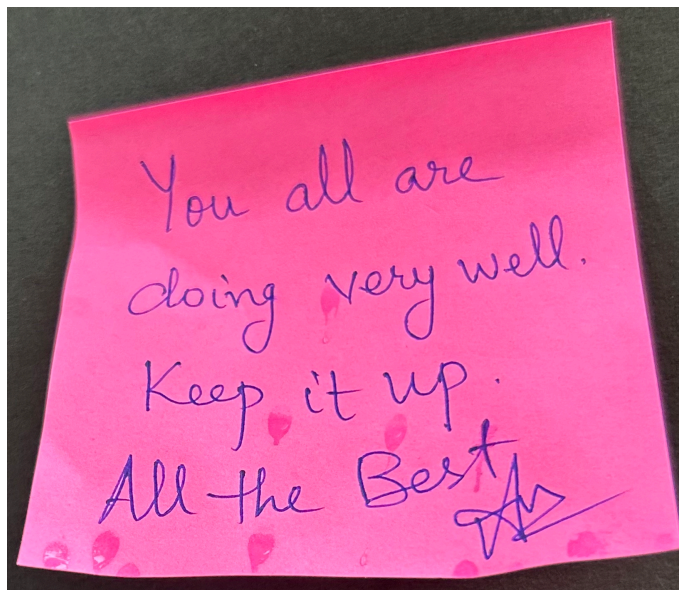 You all are
doing very well.
Keep it up.
All the Best